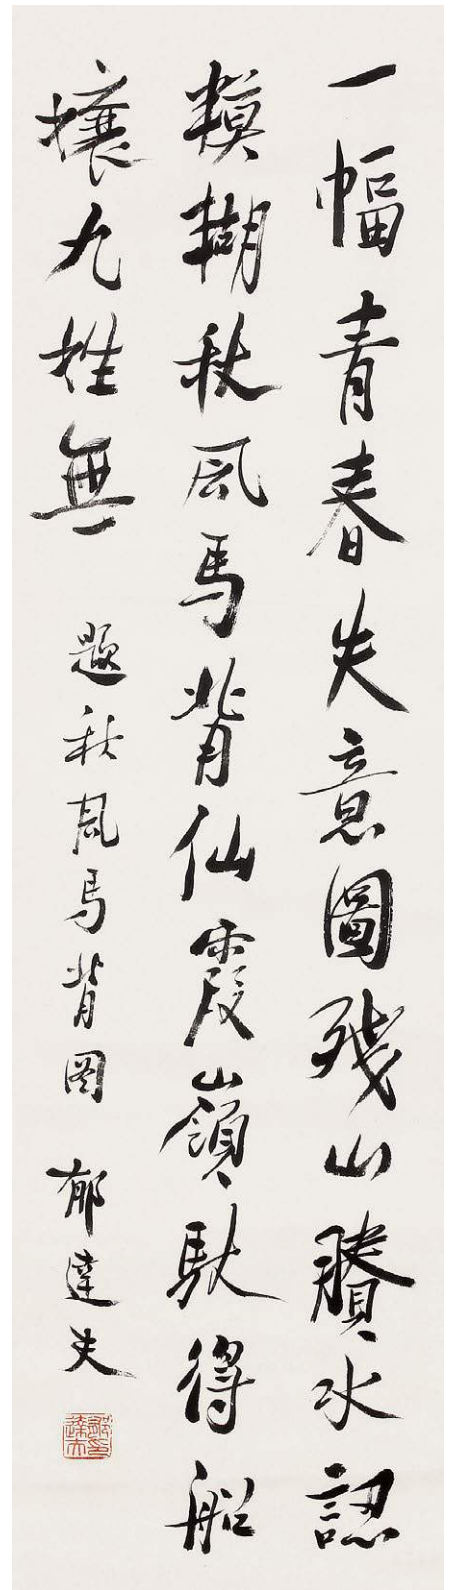 一幅青春失意圖残山賸水認
糢糊秋風馬背仙霞嶺馱得船
孃九姓無
題秋風馬背图
郁達夫